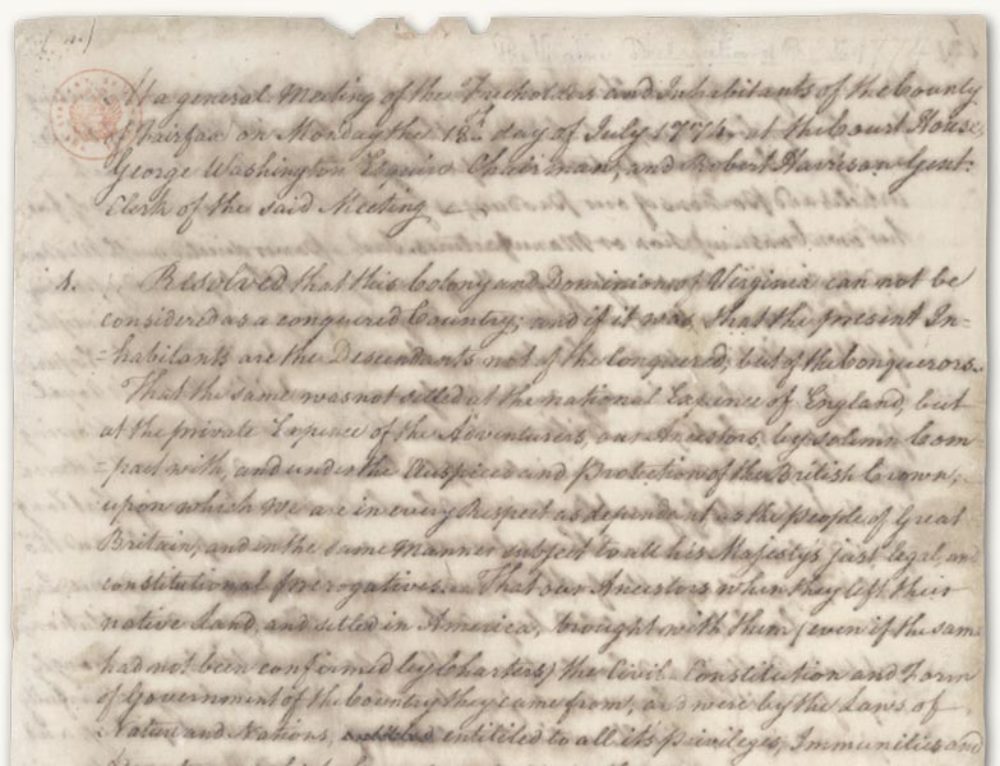 At a general Meeting of the Freeholders and Inhabitants of the County
of Fairfax on Monday the 18th day of July 1774, at the Court House,
George Washington Esquire Chairman, and Robert Harrison Gent.
Clerk of the said Meeting
1. Resolved that this Colony and Dominion of Virginia can not be
considered as a conquered Country; and if it was, that the present In=
=habitants are the Descendants not of the Conquered, but of the Conquerors.
That the same was not setled at the national Expence of England, but
at the private Expence of the Adventurers, our Ancestors, by solemn Com=
=pact with, and under the Auspices and Protection of the British Crown;
upon which we are in every Respect as dependant as the People of Great
Britain, and in the same Manner subject to all his Majesty's just, legal, and
constitutional Prerogatives. That our Ancestors, when they left their
native Land, and setled in America, brought with them (even if the same
had not been confirmed by Charters) the Civil Constitution and Form
of Government of the Country they came from; and were by the Laws of
Nature and Nations, entitiled to all it's Privileges, Immunities and